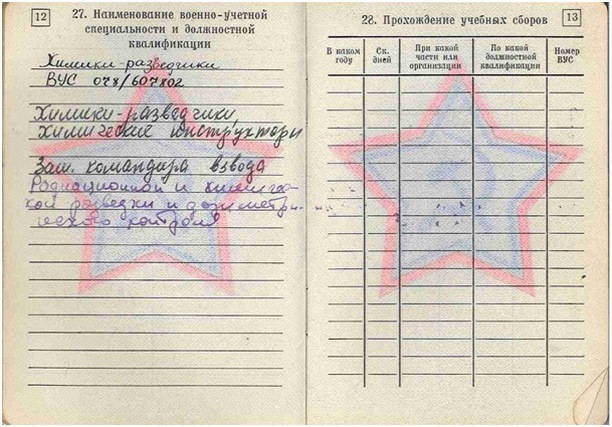 12
27. Наименование военно-учетной
специальности и должностной
квалификации
Химики-разведчики
ВУС 078/607802
Химики-разведчики,
химические инструкторы
Зам. командира взвода
Радиационной и химичес-
кой разведки и дозиметри-
ческого контроля
28. Прохождение учебных сборов
13
В каком
году
Ск.
дней
При какой
части или
организации
По какой
должностной
квалификации
Номер
ВУС